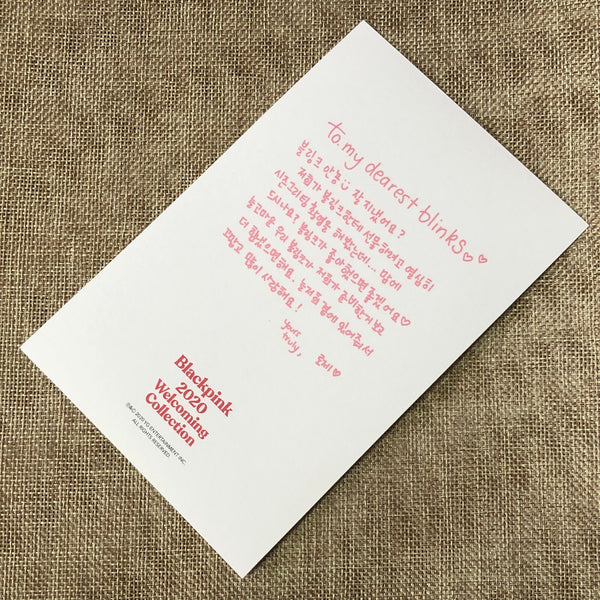 to. my dearest blinks♡♡♡
블링크 안뇽 잘 지냈어요?
저희가 블링크한테 선물하려고 열심히
시즌그리팅 촬영을 해봤는데... 맘에
드시나요? 블링크가 좋아했으면 좋겠어요♡
늘 고마운 우리 블링크가 저희가 준비한거 보고
더 힘났으면해요. 늘 저희 곁에 있어줘서
고맙고 많이 사랑해요!
your
truly, 로제♡
Blackpink
2020
Welcoming
Collection
©&℗ 2020 YG ENTERTAINMENT INC.
ALL RIGHTS RESERVED.